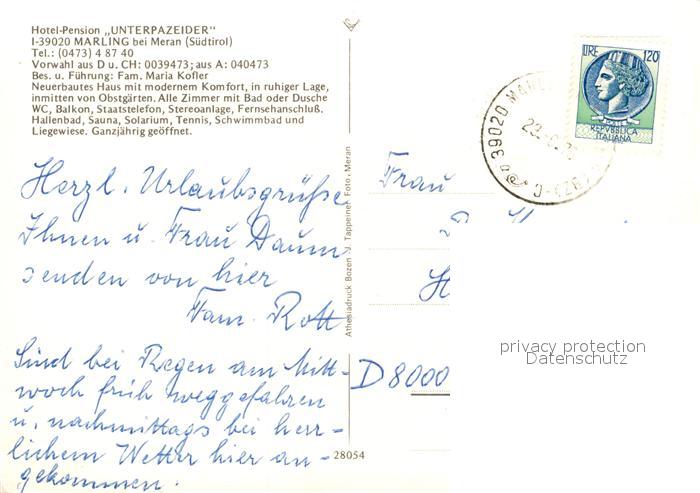 Hotel-Pension „UNTERPAZEIDER"
I-39020 MARLING bei Meran (Südtirol)
Tel.: (0473) 4 87 40
Vorwahl aus D u. CH: 0039473; aus A: 040473
Bes. u. Führung: Fam. Maria Kofler
Neuerbautes Haus mit modernem Komfort, in ruhiger Lage,
inmitten von Obstgärten. Alle Zimmer mit Bad oder Dusche
WC, Balkon, Staatstelefon, Stereoanlage, Fernsehanschluß.
Hallenbad, Sauna, Solarium, Tennis, Schwimmbad und
Liegewiese. Ganzjährig geöffnet.
Herzl. Urlaubsgrüße
Ihnen u. Frau Daum
senden von hier
Fam. Rott
Sind bei Regen am Mitt-
woch früh weggefahren
u. nachmittags bei herr-
lichem Wetter hier an-
gekommen.
Athesiadruck Bozen u. Tappeiner Foto, Meran
28054
LIRE 120
REPVBBLICA
ITALIANA
39020
(BZ)
Frau
H
D 8000
privacy protection
Datenschutz